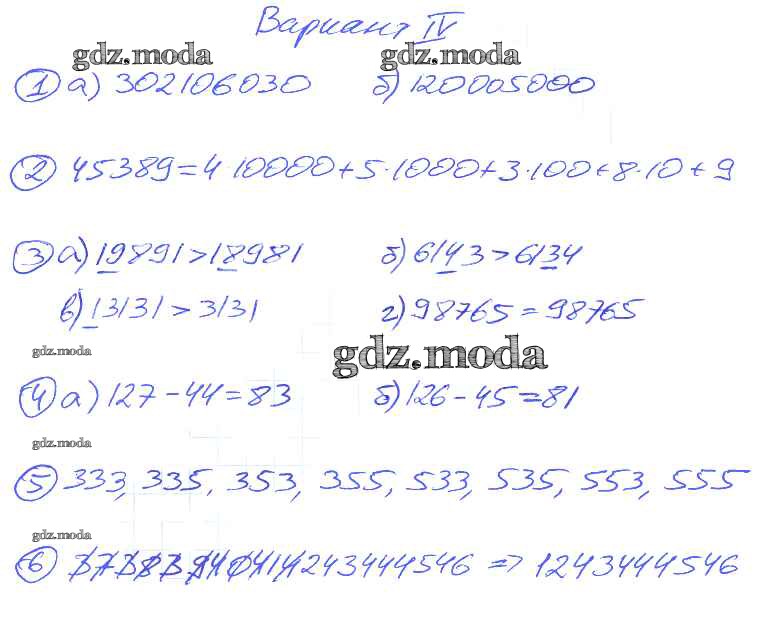 Вариант IV
gdz.moda gdz.moda
1 а) 302106030 б) 120005000
2 45389=4·10000+5·1000+3·100+8·10+9
3 а) 19891>18981 б) 6143>6134
в) 13131>3131 г) 98765=98765
gdz.moda gdz.moda
4 а) 127-44=83 б) 126-45=81
gdz.moda
5 333, 335, 353, 355, 533, 535, 553, 555
gdz.moda
6 37383940414243444546 => 1243444546